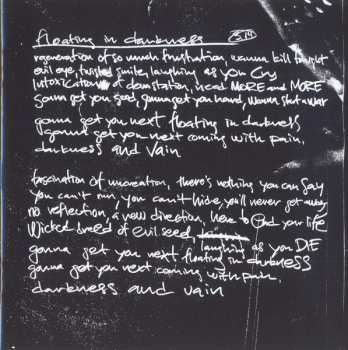 floating in darkness 3:14
regeneration of so much frustration, wanna kill tonight
evil eye, twisted smile, laughing as you Cry
Intoxication of devastation, need MORE and MORE
gonna get you good, gonna get you hard, wanna start a war
gonna get you next floating in darkness
gonna get you next coming with pain,
darkness and vain
fascination of uncreation, there's nothing you can say
you can't run, you can't hide, you'll never get away
no reflection, a new direction, here to end your life
Wicked breed of evil seed, laughing as you DIE
gonna get you next floating in darkness
gonna get you next coming with pain,
darkness and vain